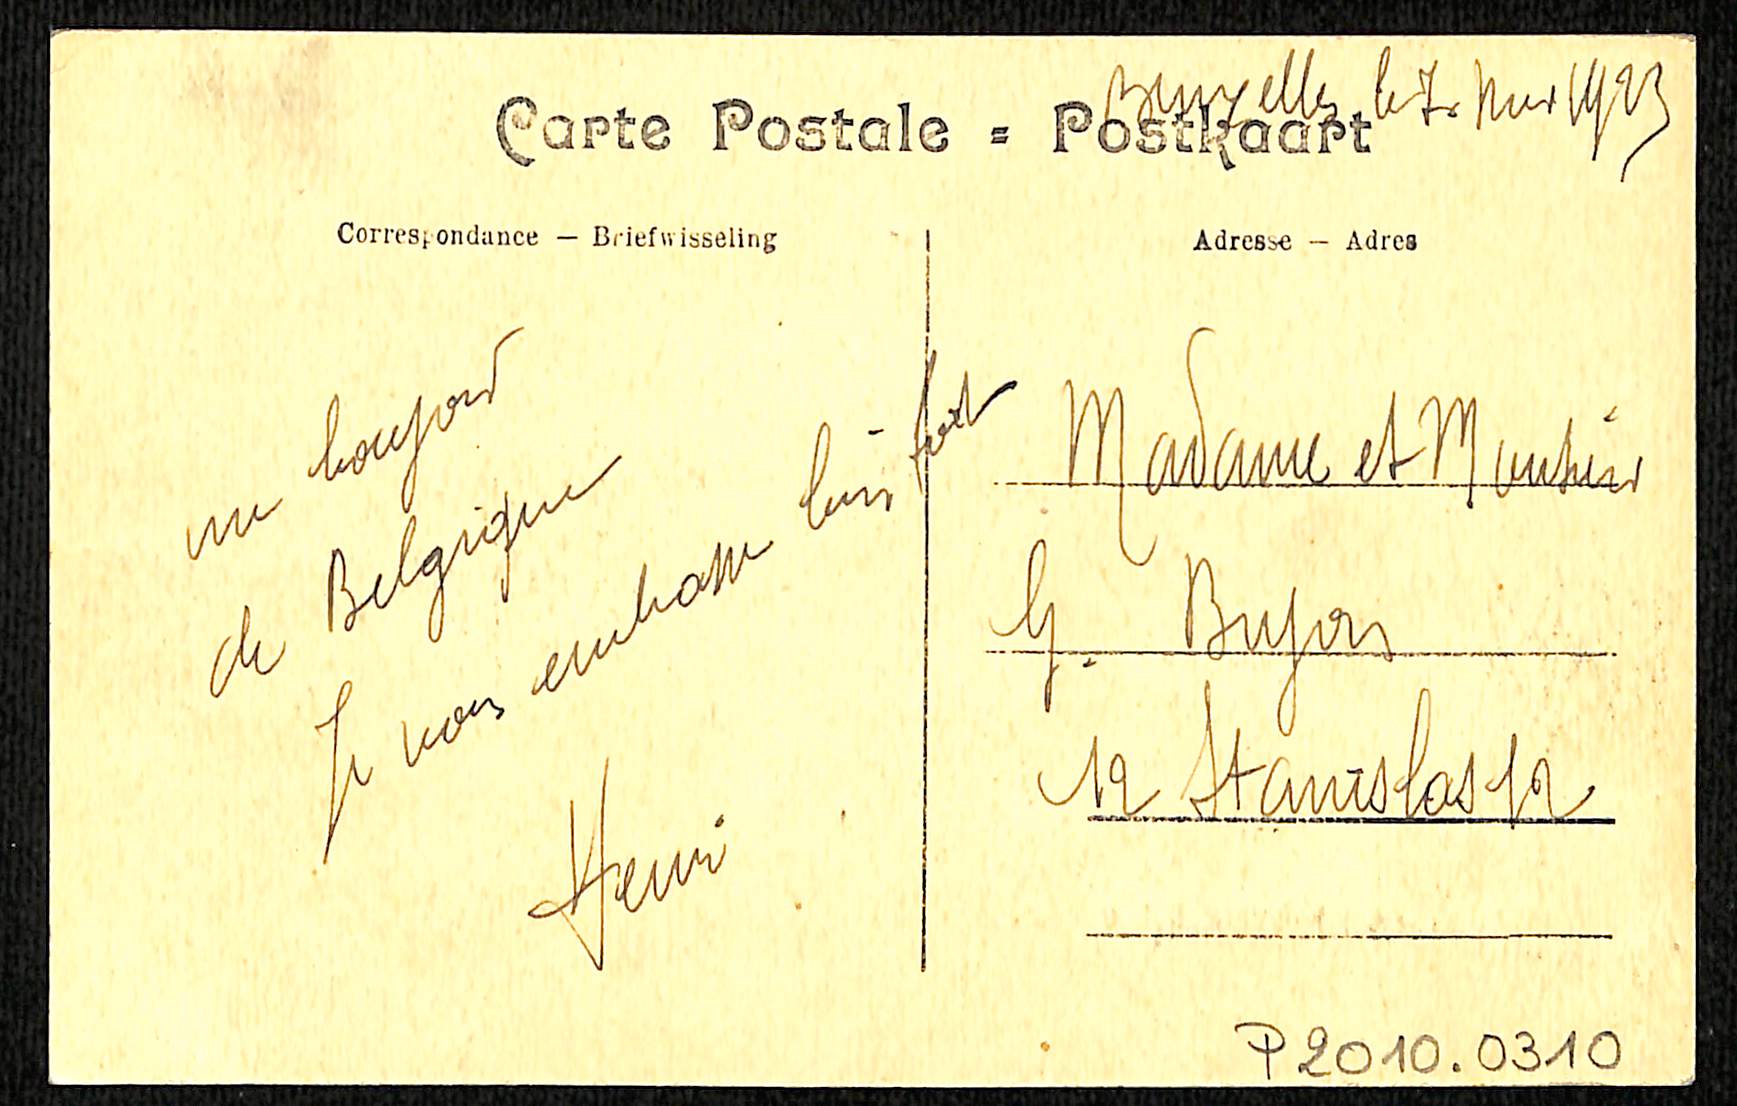 Bruxelles le 7. Mer 1923
Carte Postale = Postkaart
Correspondance — Briefwisseling
Adresse — Adres
un bonjour
de Belgique
Je vous embrasse bien fort
Henri
Madame et Monsieur
G. Bujon
12 Stanislas 12
P2010.0310